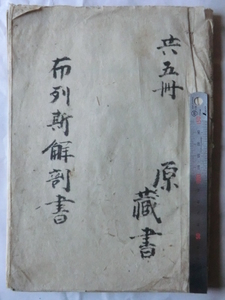 共五冊
原藏書
布列斯解剖書